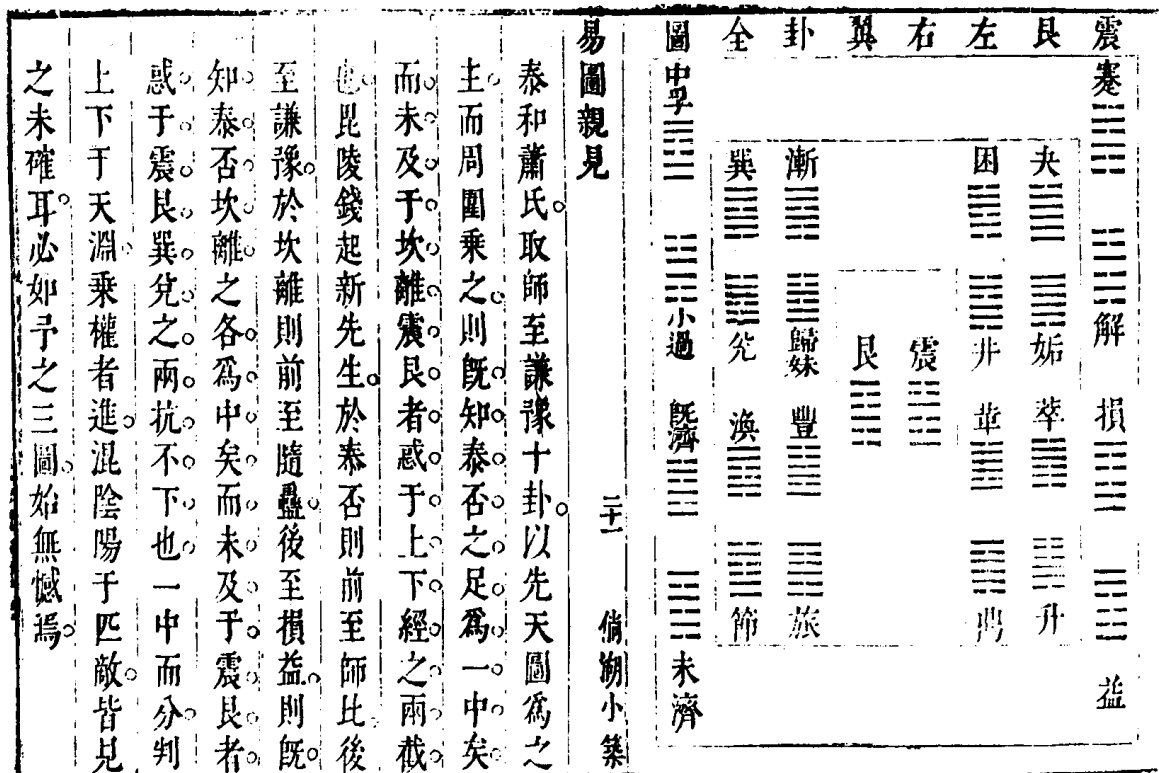 震艮左右翼卦全圖
蹇 解 損 益
夬 姤 萃 升
困 井 革 鼎
震
艮
漸 歸妹 豐 旅
巽 兌 渙 節
中孚 小過 既濟 未濟
易圖親見 二十一 倘湖小築
泰和蕭氏。取師至謙豫十卦。以先天圖爲之
主。而周圍乘之。則既知泰否之足爲一中矣。
而未及于坎離震艮者。惑于上下經之兩截
也。毘陵錢起新先生。於泰否則前至師比後
至謙豫。於坎離則前至隨蠱。後至損益。則既
知泰否坎離之各爲中矣。而未及于震艮者。
惑于震艮巽兌之兩抗不下也。一中而分判
上下于天淵。乘權者進。混陰陽于匹敵。皆見
之未確耳。必如予之三圖。始無憾焉。